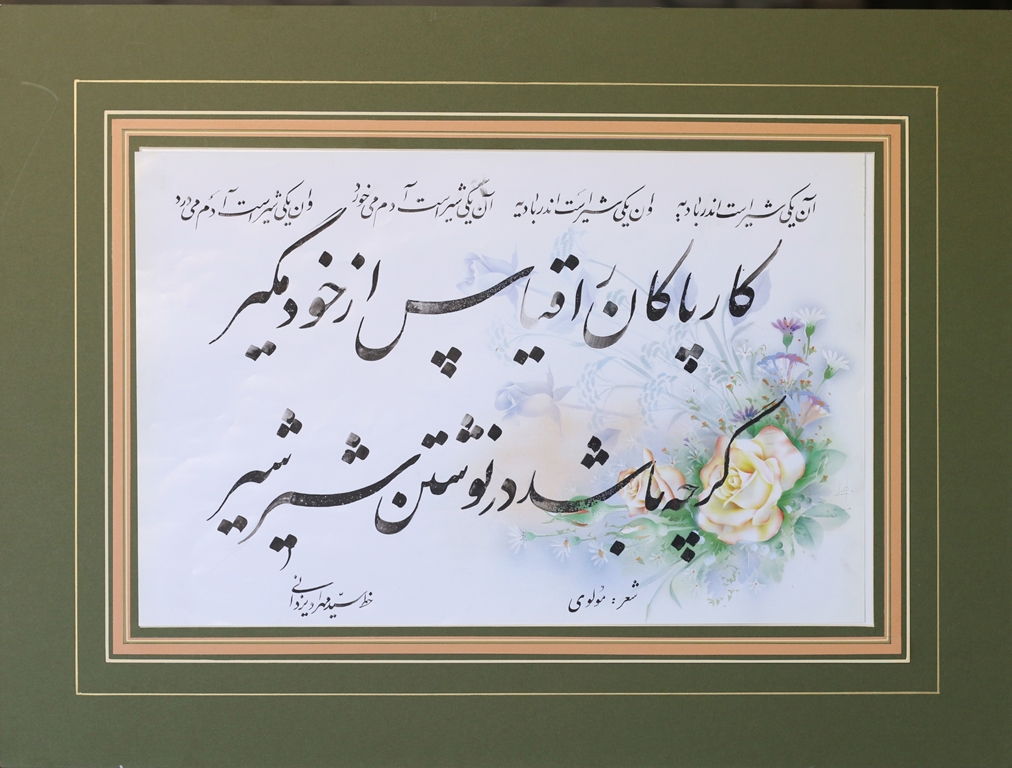 آن یکی شیر است اندر بادیه وان یکی شیر است اندر بادیه آن یکی شیر است آدم می خورد وان یکی شیر است آدم می درد
کار پاکان را قیاس از خود مگیر
گرچه باشد در نوشتن شیر شیر
شعر : مولوی
خط سید مهرداد یزدانی